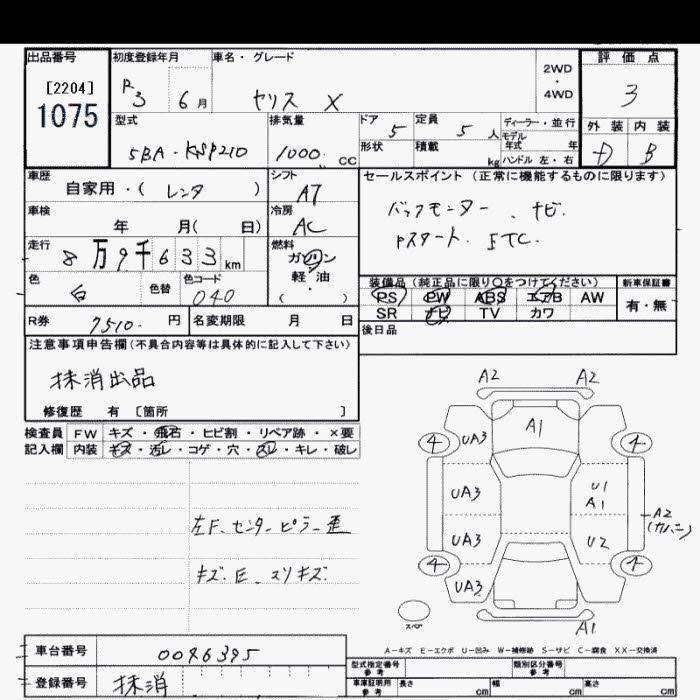 出品番号
[2204]
1075
初度登録年月
R3 6月
車名・グレード
ヤリス X
2WD
・
4WD
評価点
3
型式
5BA-KSP210
排気量
1000 CC
ドア 5
定員 5人
形状
積載 kg
ディーラー・並行
モデル
年式 年
ハンドル 左・右
外装 内装
D B
車歴
自家用・( レンタ )
シフト
AT
車検
年 月( 日)
冷房
AC
走行
8万9千633km
燃料
ガソリン
軽・油
( )
色
白
色替
色コード
040
セールスポイント (正常に機能するものに限ります)
バックモニター、ナビ.
Pスタート. ETC.
装備品 (純正品に限り○をつけてください)
PS PW ABS エアB AW
SR ナビ TV カワ
新車保証書
有・無
R券 7510. 円
名変期限 月 日
後日品
注意事項申告欄(不具合内容等は具体的に記入して下さい)
抹消出品
修復歴 有 [箇所 ]
検査員
記入欄
FW キズ・飛石・ヒビ割・リペア跡・×要
内装 キズ・汚レ・コゲ・穴・スレ・キレ・破レ
左F.センターピラー歪
キズ.E.スリキズ.
A2 A2
A1
4 UA3 4
UA3 U1
A1
A2
UA3 U2
4 UA3 4
スペア
A1
A-キズ E-エクボ U-凹み W-補修跡 S-サビ C-腐食 XX-交換済
車台番号 0096395
登録番号 抹消
型式指定番号
参考
類別区分番号
参考
車庫証明用
参考
長さ cm 幅 cm 高さ cm